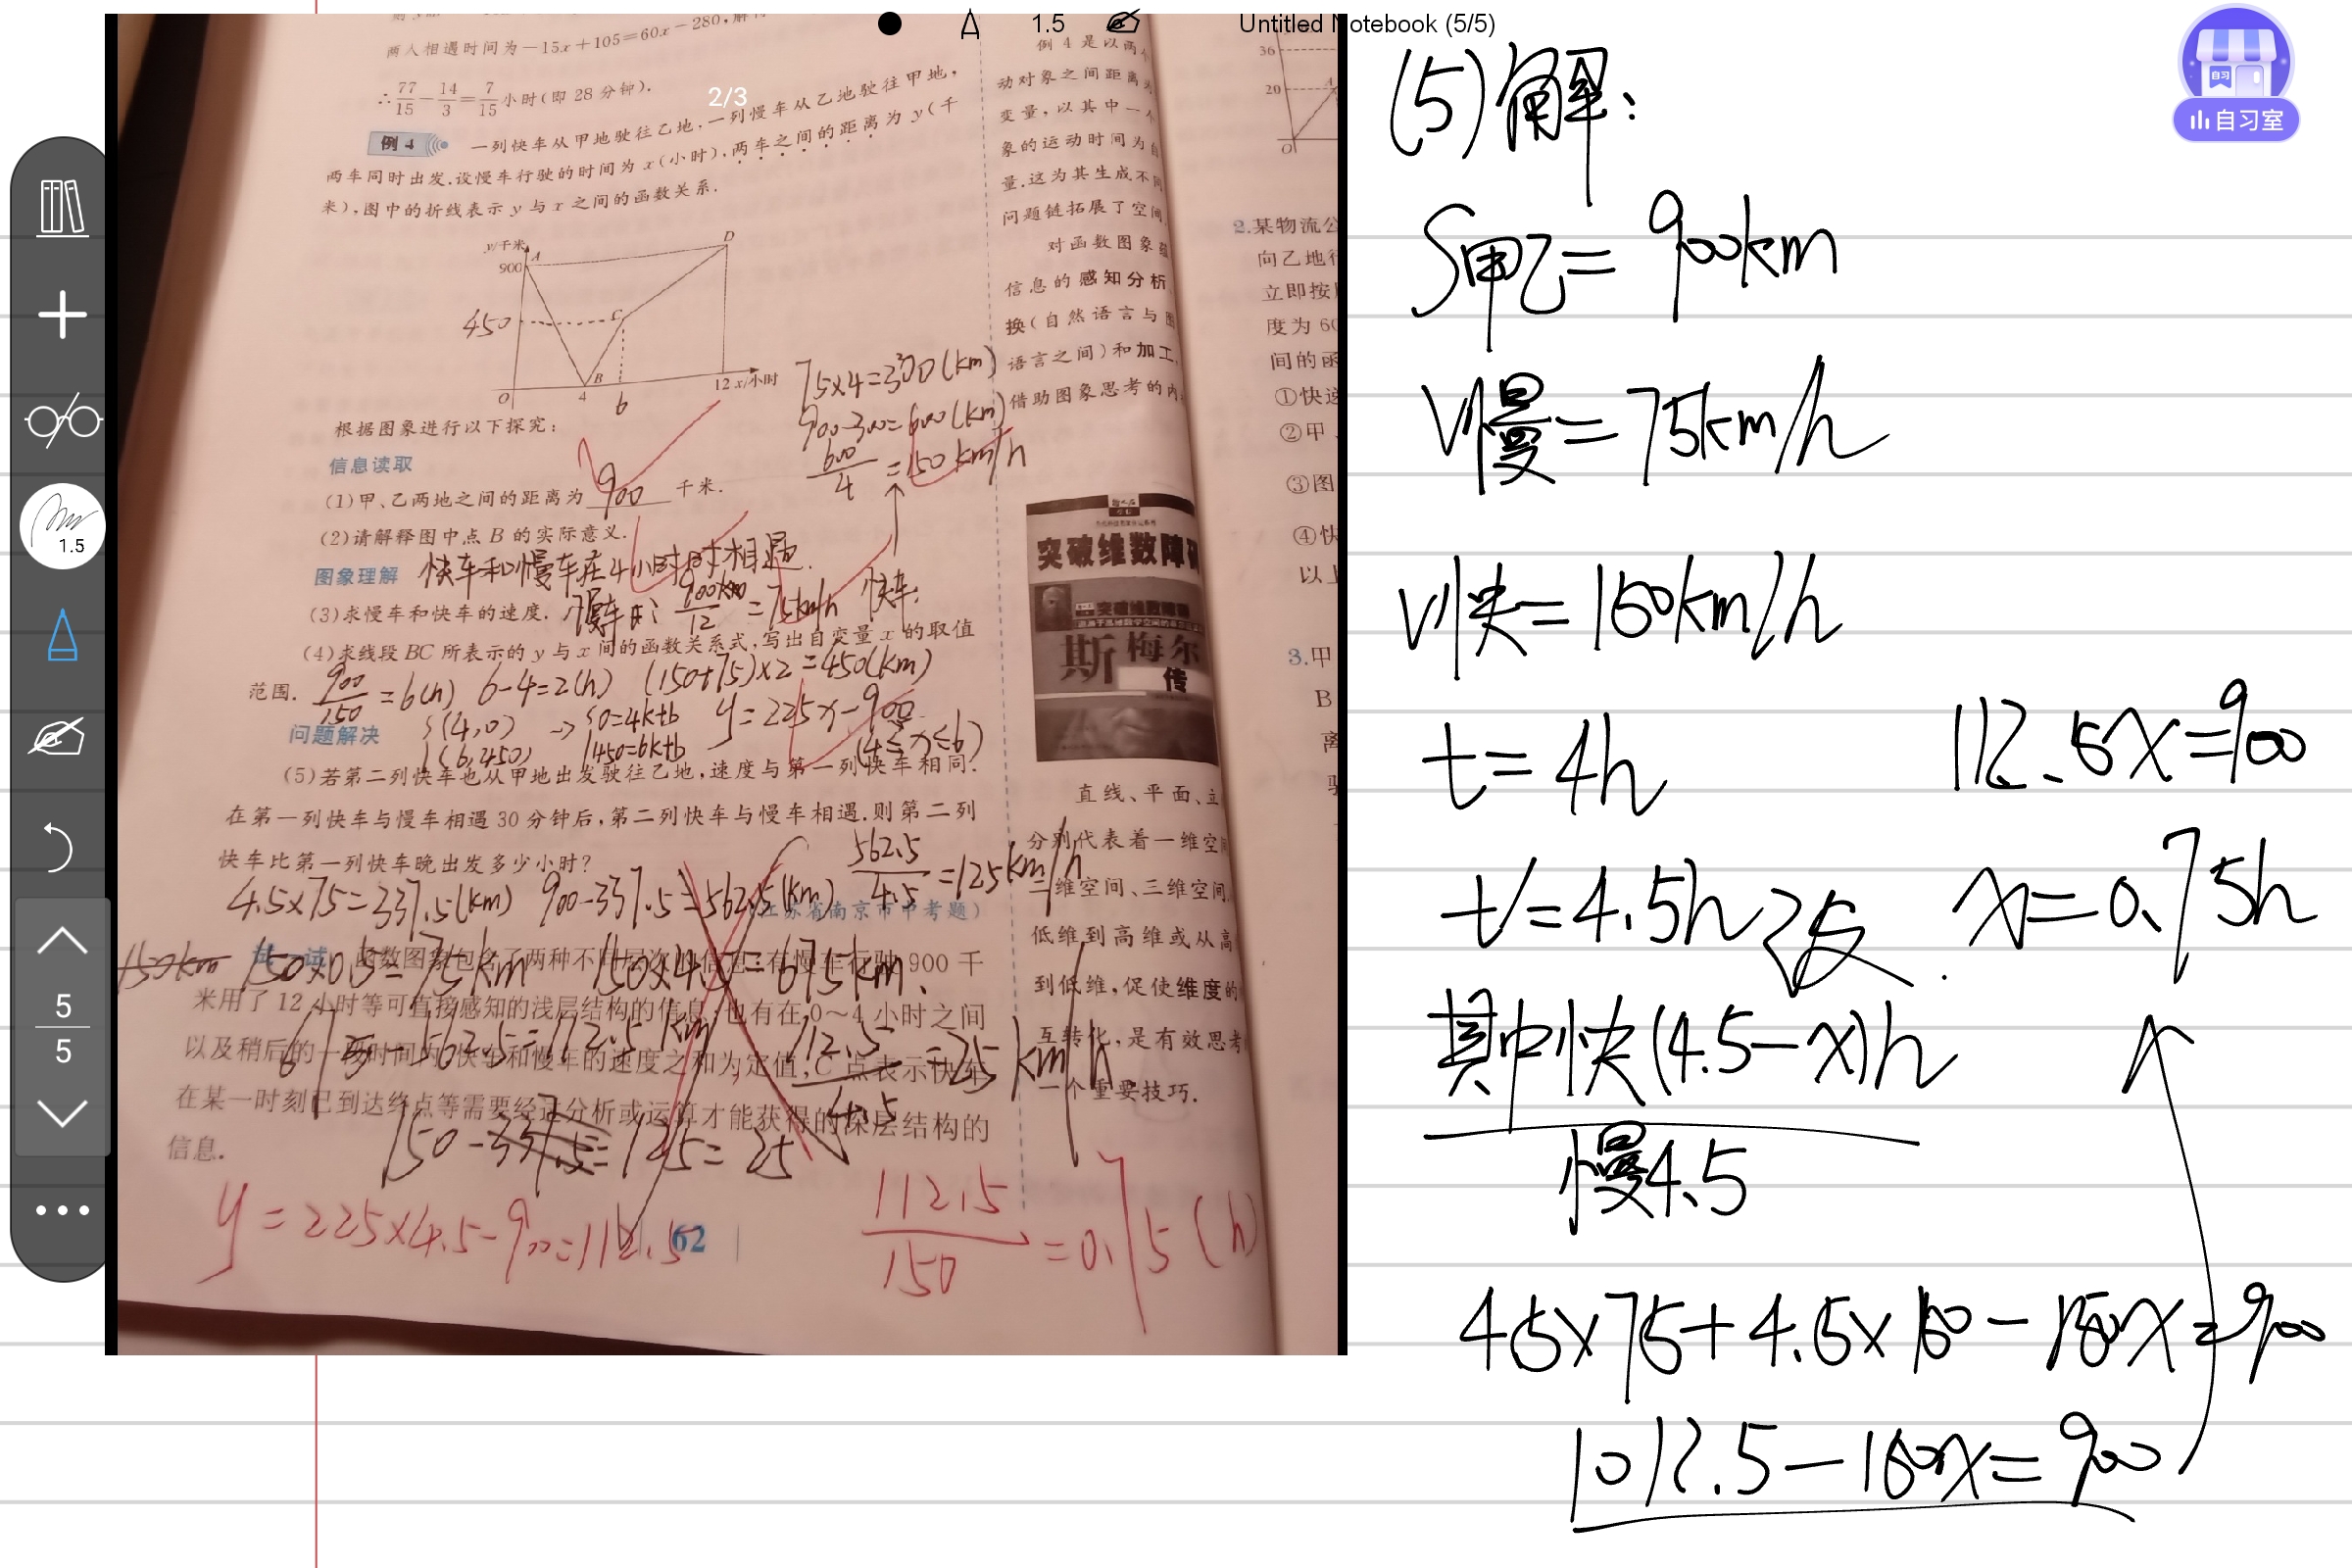 1.5
Untitled Notebook (5/5)
2/3
自习
自习室
1.5
5
5
两人相遇时间为-15x+105=60x-280,解得
∴77/15-14/3=7/15小时(即 28 分钟).
例 4 一列快车从甲地驶往乙地,一列慢车从乙地驶往甲地,
两车同时出发.设慢车行驶的时间为 x(小时),两车之间的距离为 y(千
米),图中的折线表示 y 与 x 之间的函数关系.
y/千米
900
A
D
450
C
B
O
4
6
12 x/小时
75×4=300(km)
900-300=600(km)
600/4=150km/h
根据图象进行以下探究:
信息读取
(1)甲、乙两地之间的距离为 900 千米.
(2)请解释图中点 B 的实际意义.
快车和慢车在4小时时相遇.
图象理解
(3)求慢车和快车的速度.
慢车: 900km/12=75km/h 快车:
(4)求线段 BC 所表示的 y 与 x 间的函数关系式,写出自变量 x 的取值
范围.
900/150=6(h) 6-4=2(h) (150+75)×2=450(km)
(4,0) → 0=4k+b y=225x-900
(6,450) 450=6k+b (4≤x≤6)
问题解决
(5)若第二列快车也从甲地出发驶往乙地,速度与第一列快车相同.
在第一列快车与慢车相遇 30 分钟后,第二列快车与慢车相遇.则第二列
快车比第一列快车晚出发多少小时?
4.5×75=337.5(km) 900-337.5=562.5(km) 562.5/4.5=125km/h
(江苏省南京市中考题)
150km 150×0.5=75km 150×4.5=675km.
试一试 函数图象包含了两种不同层次的信息:有慢车行驶 900 千
米用了 12 小时等可直接感知的浅层结构的信息;也有在 0～4 小时之间
以及稍后的一段时间内,快车和慢车的速度之和为定值,C 点表示快车
在某一时刻已到达终点等需要经过分析或运算才能获得的深层结构的
信息.
675-562.5=112.5km 112.5/4.5=25km/h
y=225×4.5-900=112.5
112.5/150=0.75(h)
62
例 4 是以两
动对象之间距离
变量,以其中一个
象的运动时间为自
量.这为其生成不同
问题链拓展了空间
对函数图象
信息的感知分析
换(自然语言与图
语言之间)和加工
借助图象思考的内
突破维数障
斯梅尔
传
直线、平面、立
分别代表着一维空间
二维空间、三维空间
低维到高维或从高
到低维,促使维度的
互转化,是有效思考
一个重要技巧.
36
20
A
O
2.某物流公
向乙地行
立即按
度为 60
间的函
①快速
②甲、
③图
④快
以上
3.甲
B
离
(5)解:
S甲乙=900km
V慢=75km/h
V快=150km/h
t=4h
t′=4.5h
其中快(4.5-x)h
慢4.5
4.5×75+4.5×150-150x=900
1012.5-150x=900
112.5x=900
x=0.75h